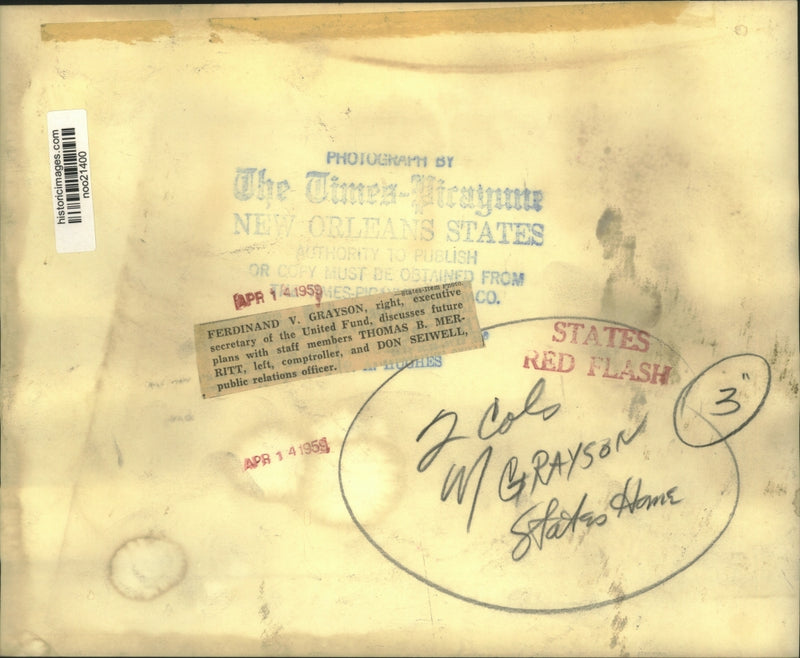 historicimages.com
noo21400
PHOTOGRAPH BY
The Times-Picayune
NEW ORLEANS STATES
AUTHORITY TO PUBLISH
OR COPY MUST BE OBTAINED FROM
CO.
APR 14 1959
—States-Item photo.
FERDINAND V. GRAYSON, right, executive
secretary of the United Fund, discusses future
plans with staff members THOMAS B. MER-
RITT, left, comptroller, and DON SEIWELL,
public relations officer.
HUGHES
STATES
RED FLASH
3"
2 Cols
W/ GRAYSON
States Home
APR 14 1959